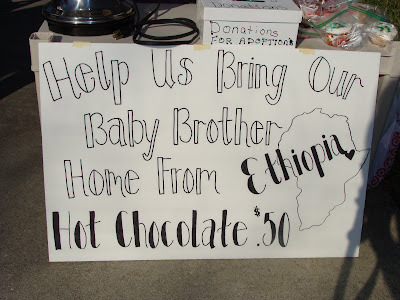 Donations
FOR ADOPTION!
Help Us Bring Our
Baby Brother
Home From Ethiopia
Hot Chocolate $.50